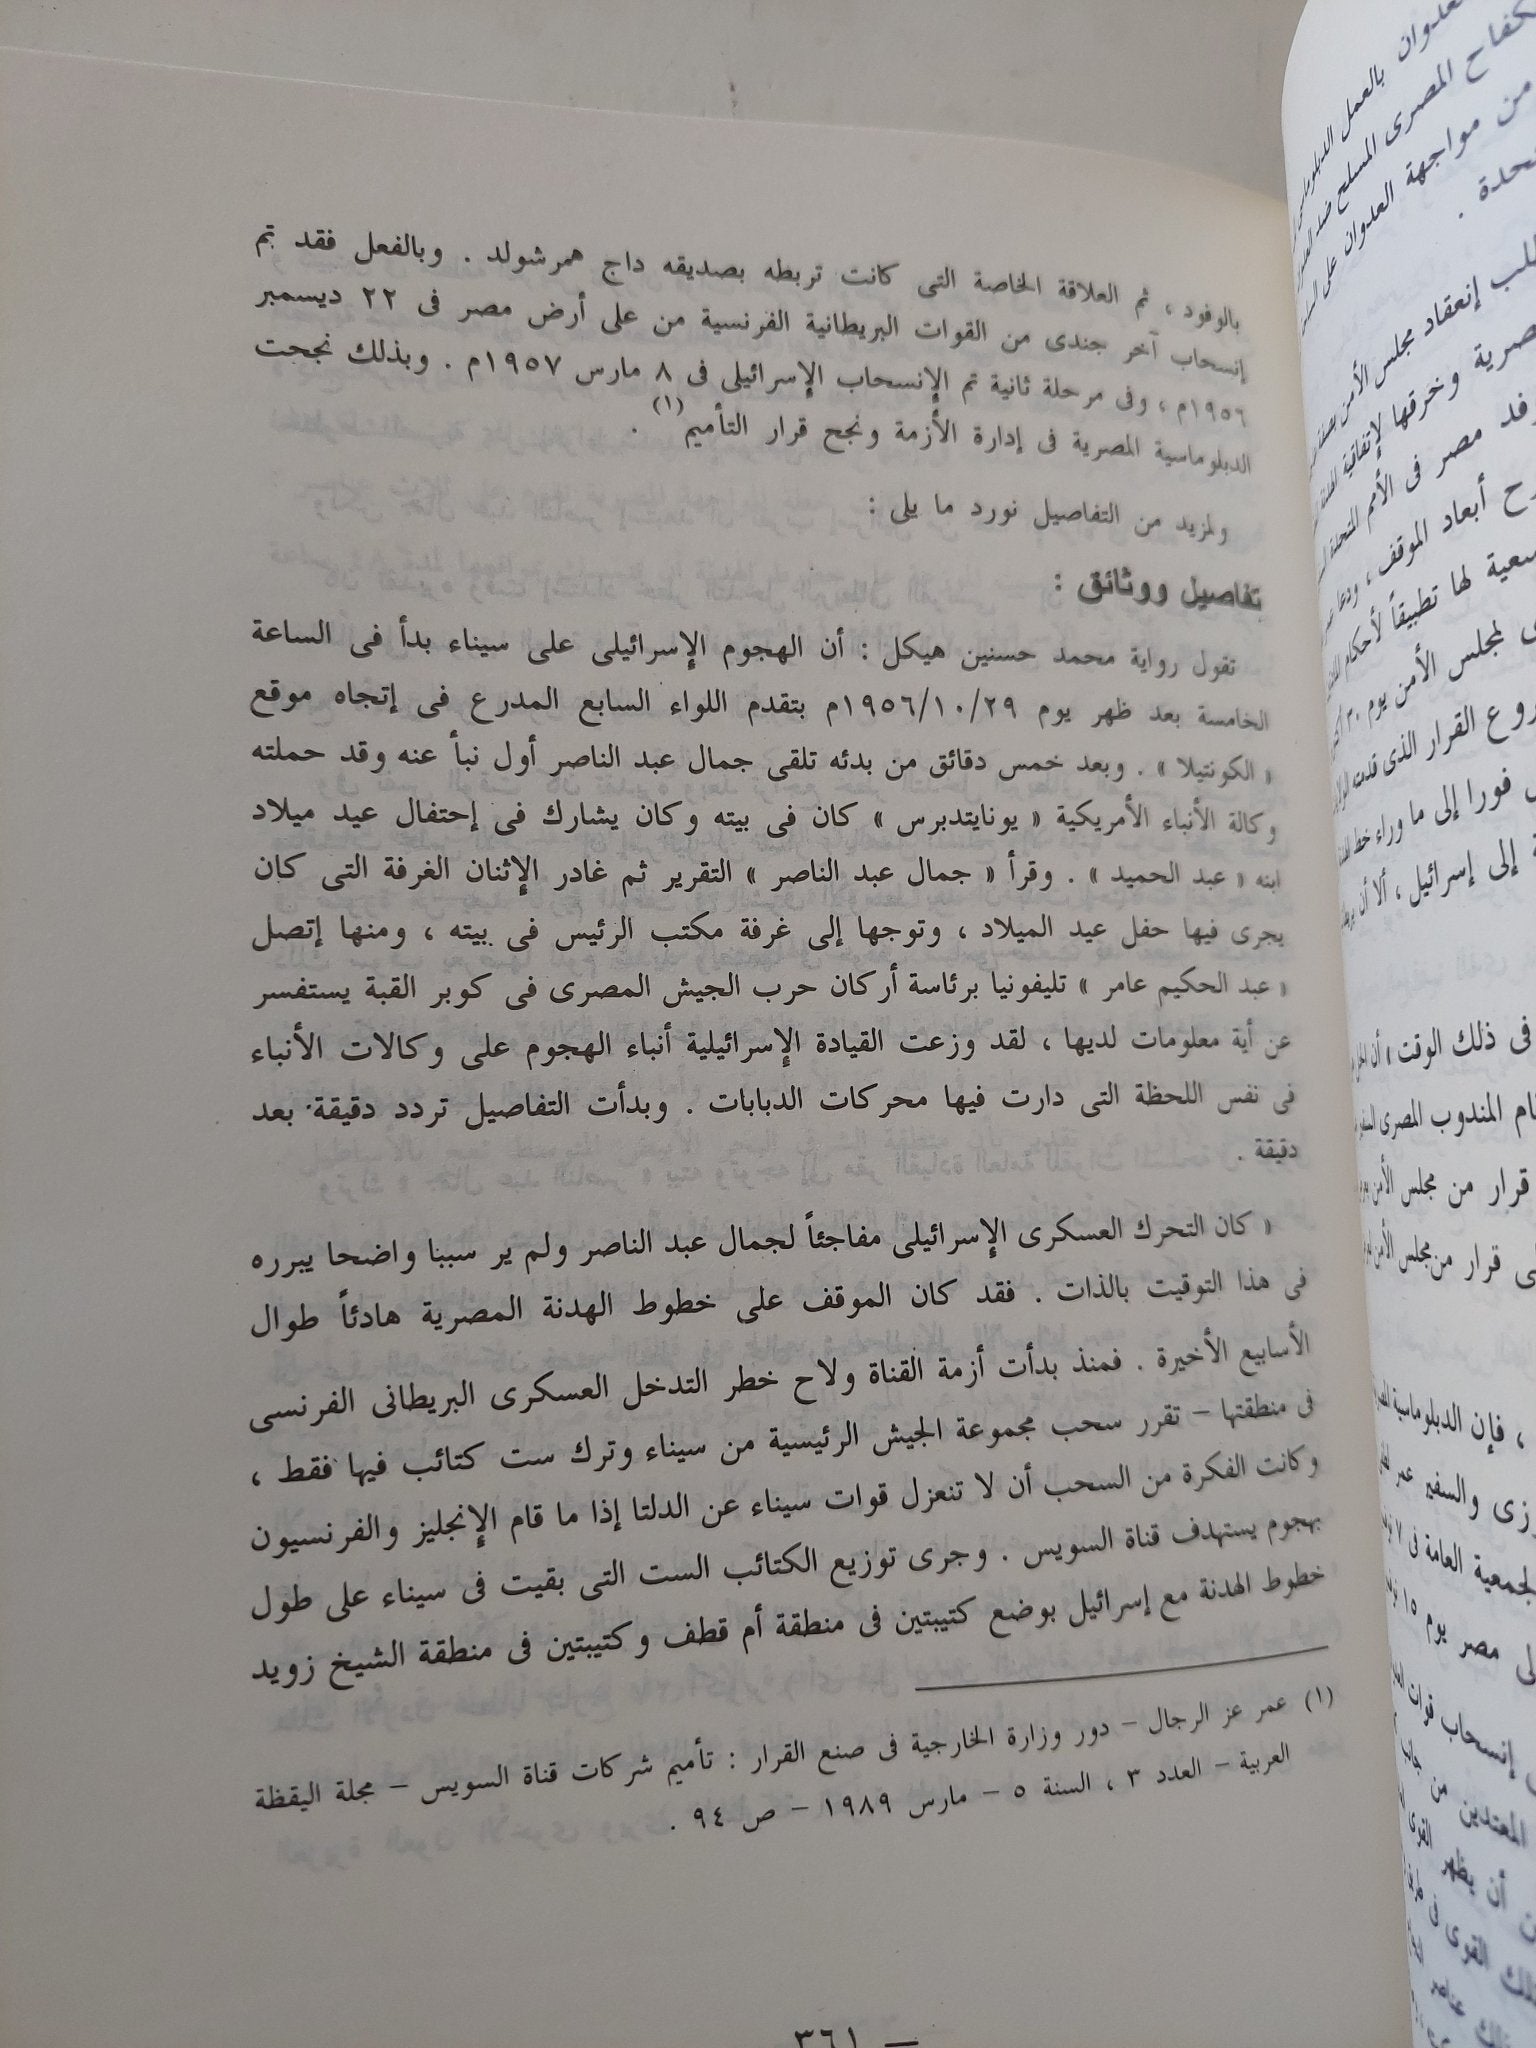 بالوفود ، ثم العلاقة الخاصة التى كانت تربطه بصديقه داج همرشولد . وبالفعل فقد تم
إنسحاب آخر جندى من القوات البريطانية الفرنسية من على أرض مصر فى ٢٢ ديسمبر
١٩٥٦م ، وفى مرحلة ثانية تم الإنسحاب الإسرائيلى فى ٨ مارس ١٩٥٧م . وبذلك نجحت
الدبلوماسية المصرية فى إدارة الأزمة ونجح قرار التأميم (١) .
ولمزيد من التفاصيل نورد ما يلى :
تفاصيل ووثائق :
تقول رواية محمد حسنين هيكل : أن الهجوم الإسرائيلى على سيناء بدأ فى الساعة
الخامسة بعد ظهر يوم ١٩٥٦/١٠/٢٩م بتقدم اللواء السابع المدرع فى إتجاه موقع
« الكونتيلا » . وبعد خمس دقائق من بدئه تلقى جمال عبد الناصر أول نبأ عنه وقد حملته
وكالة الأنباء الأمريكية « يونايتدبرس » كان فى بيته وكان يشارك فى إحتفال عيد ميلاد
ابنه « عبد الحميد » . وقرأ « جمال عبد الناصر » التقرير ثم غادر الإثنان الغرفة التى كان
يجرى فيها حفل عيد الميلاد ، وتوجها إلى غرفة مكتب الرئيس فى بيته ، ومنها إتصل
« عبد الحكيم عامر » تليفونيا برئاسة أركان حرب الجيش المصرى فى كوبر القبة يستفسر
عن أية معلومات لديها ، لقد وزعت القيادة الإسرائيلية أنباء الهجوم على وكالات الأنباء
فى نفس اللحظة التى دارت فيها محركات الدبابات . وبدأت التفاصيل تردد دقيقة بعد
دقيقة .
« كان التحرك العسكرى الإسرائيلى مفاجئاً لجمال عبد الناصر ولم ير سببا واضحا يبرره
فى هذا التوقيت بالذات . فقد كان الموقف على خطوط الهدنة المصرية هادئاً طوال
الأسابيع الأخيرة . فمنذ بدأت أزمة القناة ولاح خطر التدخل العسكرى البريطانى الفرنسى
فى منطقتها – تقرر سحب مجموعة الجيش الرئيسية من سيناء وترك ست كتائب فيها فقط ،
وكانت الفكرة من السحب أن لا تنعزل قوات سيناء عن الدلتا إذا ما قام الإنجليز والفرنسيون
بهجوم يستهدف قناة السويس . وجرى توزيع الكتائب الست التى بقيت فى سيناء على طول
خطوط الهدنة مع إسرائيل بوضع كتيبتين فى منطقة أم قطف وكتيبتين فى منطقة الشيخ زويد
(١) عمر عز الرجال – دور وزارة الخارجية فى صنع القرار : تأميم شركات قناة السويس – مجلة اليقظة
العربية – العدد ٣ ، السنة ٥ – مارس ١٩٨٩ – ص ٩٤ .
– ٣٦١
بالعمل
كفاح المصرى المسلح ضد
من مواجهة العدوان على
إنعقاد مجلس الأمن
وخرقها لإتفاقية
مصر فى الأمم المتحدة
أبعاد الموقف ، ودعا
لها تطبيقاً لأحكام
لمجلس الأمن يوم ٣٠
القرار الذى قدمته
فورا إلى ما وراء خط
إلى إسرائيل ، ألا أن
فى ذلك الوقت « أن
المندوب المصرى
قرار من مجلس الأمن
قرار من مجلس الأمن
، فإن الدبلوماسية
والسفير عمر
العامة فى ٧
مصر يوم ١٥
إنسحاب قوات
المعتدين من
أن يظهر القوى
القوى فى
عناصر